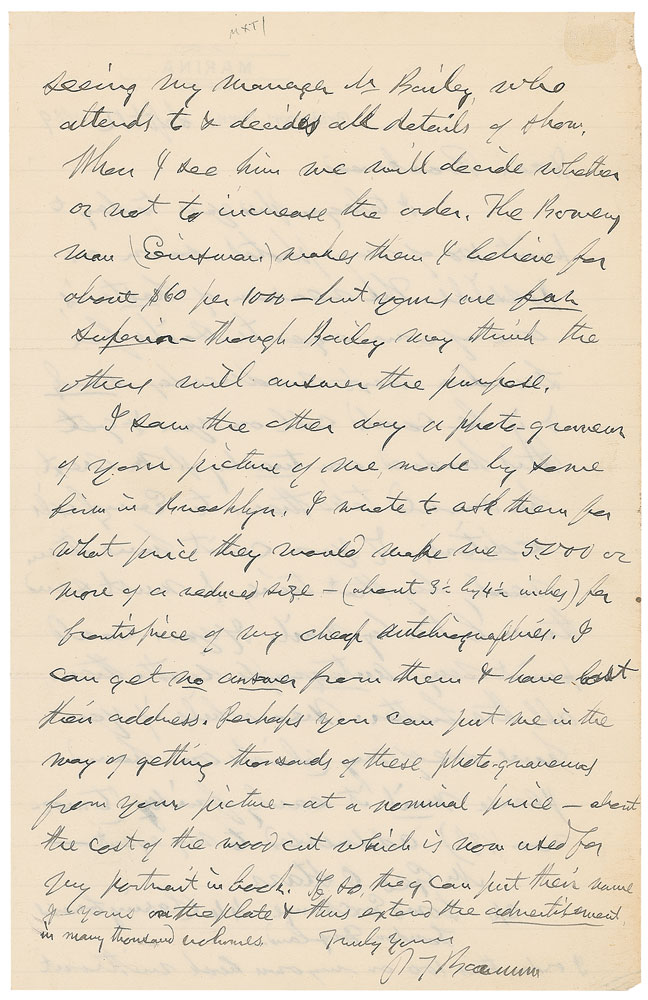 MXT/
MARINA
seeing my manager Mr Bailey who
attends to & decides all details of show.
When I see him we will decide whether
or not to increase the order. The Bowery
man (Eisnman) makes them I believe for
about $60 per 1000 – but yours are far
superior – though Bailey may think the
others will answer the purpose.
I saw the other day a photo-gravure
of your picture of me, made by some
firm in Brooklyn. I wrote to ask them for
what price they would make me 5.000 or
more of a reduced size – (about 3½ by 4½ inches) for
frontispiece of my cheap autobiographies. I
can get no answer from them & have lost
their address. Perhaps you can put me in the
way of getting thousands of these photo-gravures
from your picture – at a nominal price – about
the cost of the wood cut which is now used for
my portrait in book. If so, they can put their name
& yours on the plate & thus extend the advertisement
in many thousand homes.
Truly Yours
P T Barnum